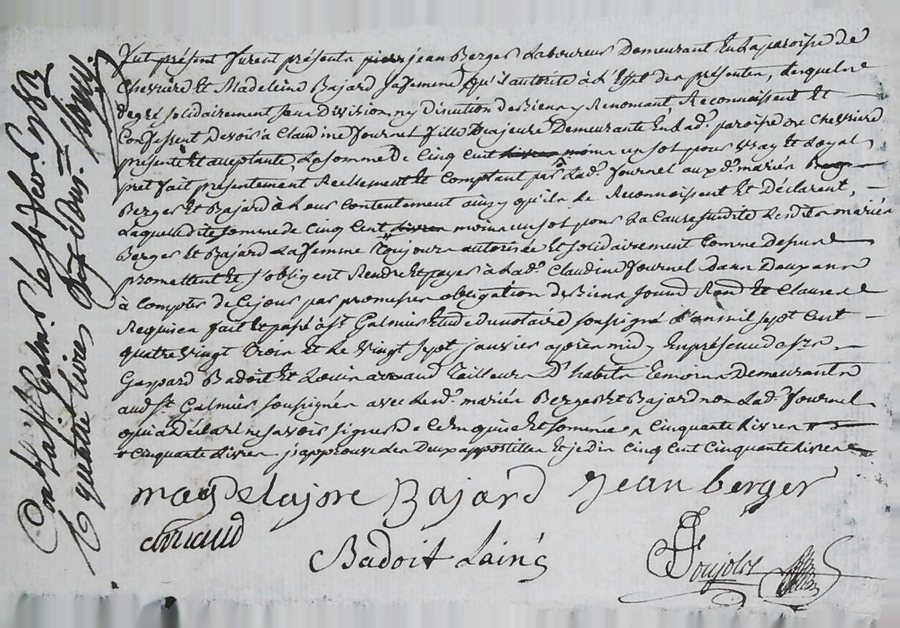 Fut présent furent présents pierre jean Berger Laboureur Demeurant En la paroisse De
Chevrière et Madeleine Bajard sa femme qu'il autorise à L'effet des présentes, Lesquels de
gré solidairement sans Division ny Discution de Biens y Renonçant, Reconnaissent Et
Confessent Devoir à Claudine fournel fille Majeure Demeurante En lad. paroisse de Chevrière
présente Et acceptante La somme de Cinq Cent livres moins un sol pour vray Et Loyal
prêt fait présentement Réellement Et Comptant par Lad. fournel aux d. mariés
Berger Et Bajard à Leur Contentement ainsy qu'ils Le Reconnaissent Et Déclarent,
Laquelle dite somme de Cinq Cent livres moins un sol pour la Cause susdite Lesdits mariés
Berger Et Bajard La femme Toujours autorisée Et solidairement Comme Dessus
promettent Et s'obligent Rendre Et payer à Lad. Claudine fournel Dans Deux ans
à Compter de Ce jour par promesses obligation de Biens Et Clauses
Requises fait Et passé à St. Galmier Etude du notaire soussigné L'an mil sept Cent
quatre vingt trois Et Le vingt sept janvier après midy En présence de sr.
Gaspard Badoit Et Louis arnaud Tailleurs D'habits Témoins Demeurants
aud. St. Galmier soussignés avec Lesd. mariés Berger Et Bajard non Lad. fournel
qui a Déclaré ne savoir signer de Ce Enquise Et sommée Cinquante Livres
Cinquante Livres j'approuve les Deux apostilles Et je dis Cinq Cent Cinquante Livres
magdelajne Bajard jean berger
arnaud
Badoit Lainé
Soujolas
Con. à St. Galmier le six feor. 1783
R quatre livres dix sous